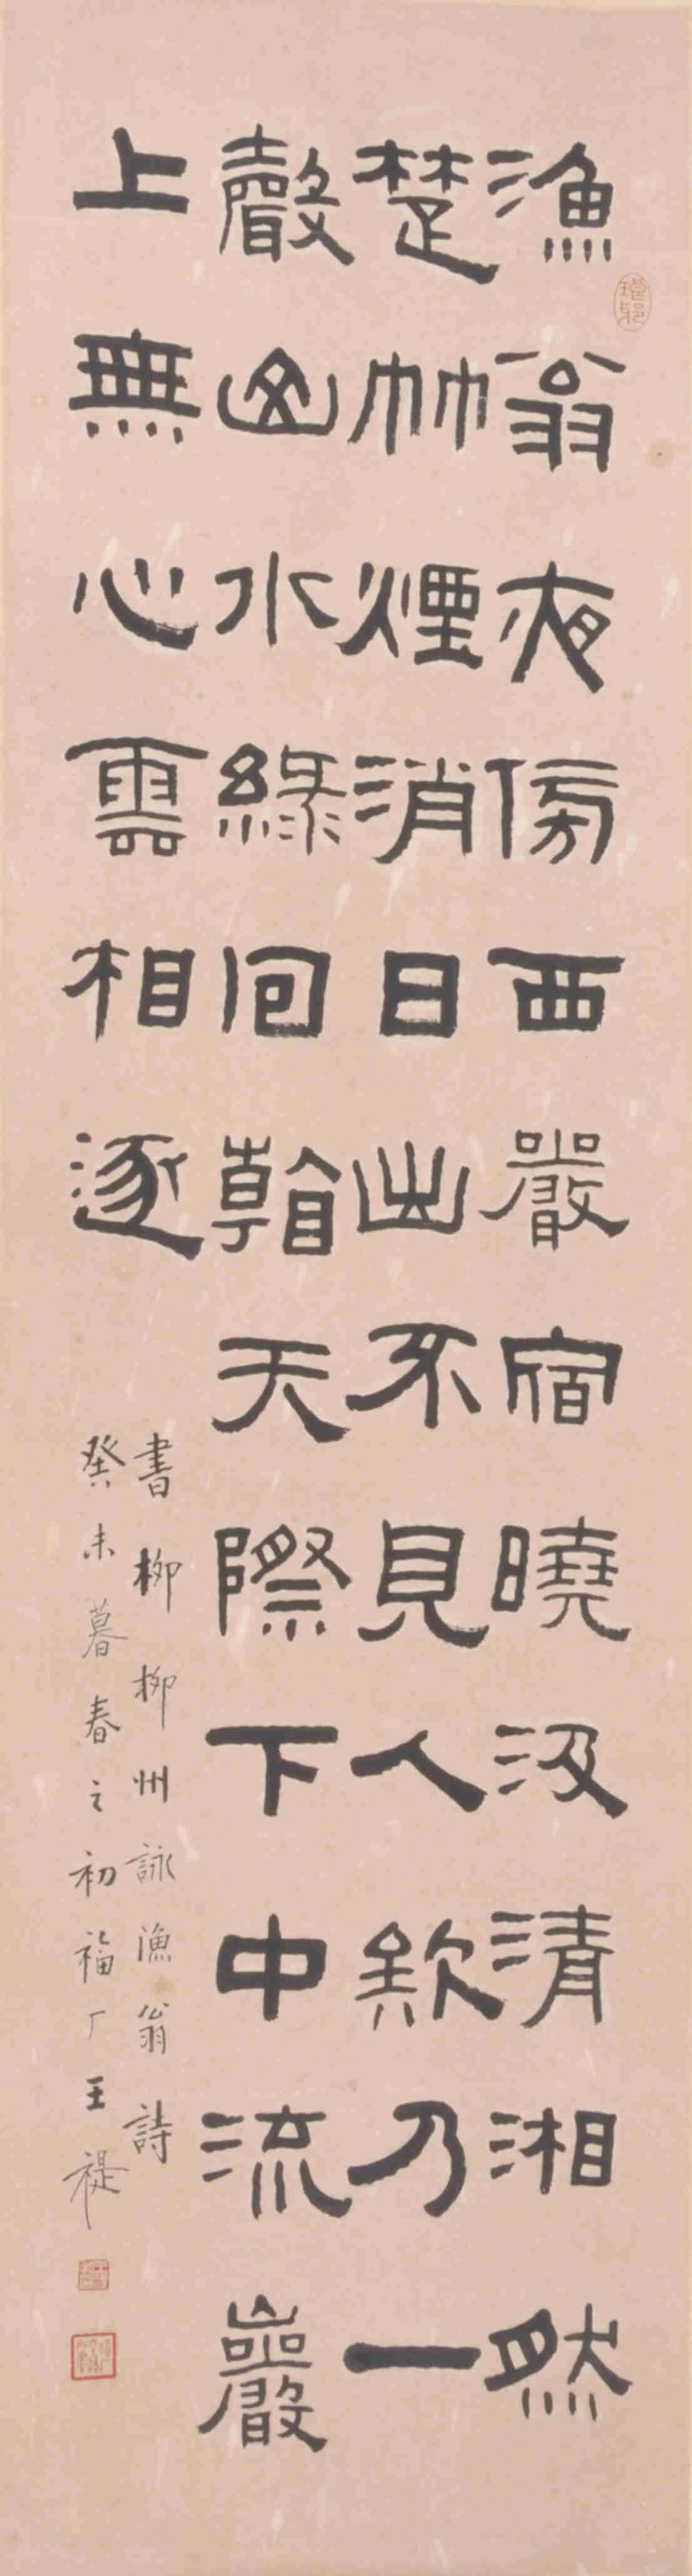 漁翁夜傍西巖宿曉汲清湘然
楚竹煙消日出不見人欸乃一
聲山水綠回韜天際下中流巖
上無心雲相逐
書柳柳州詠漁翁詩
癸未暮春之初福厂王禔